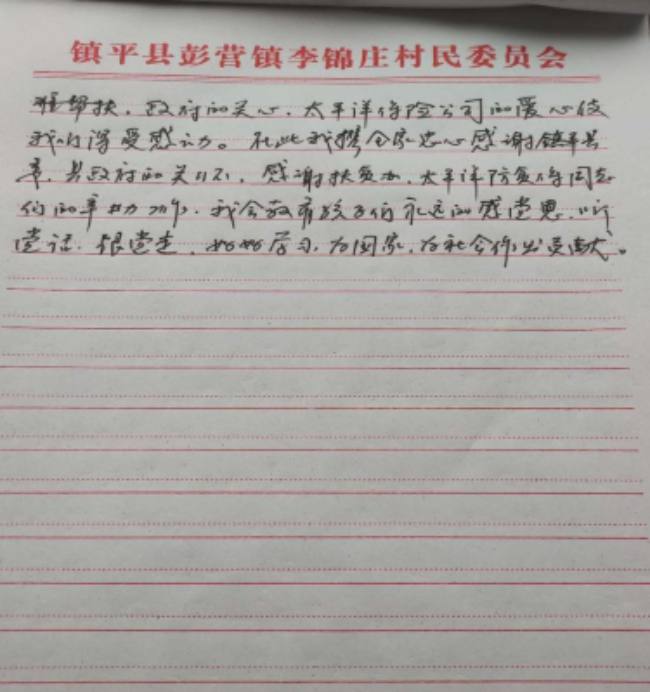 镇平县彭营镇李锦庄村民委员会
准帮扶，政府的关心，太平洋保险公司的爱心使
我们深受感动。在此我携全家忠心感谢镇平县
委，县政府的关怀，感谢扶贫办，太平洋防贫保同志
们的辛勤工作，我会教育孩子们永远的感党恩，听
党话，跟党走，好好学习，为国家，为社会作出贡献。